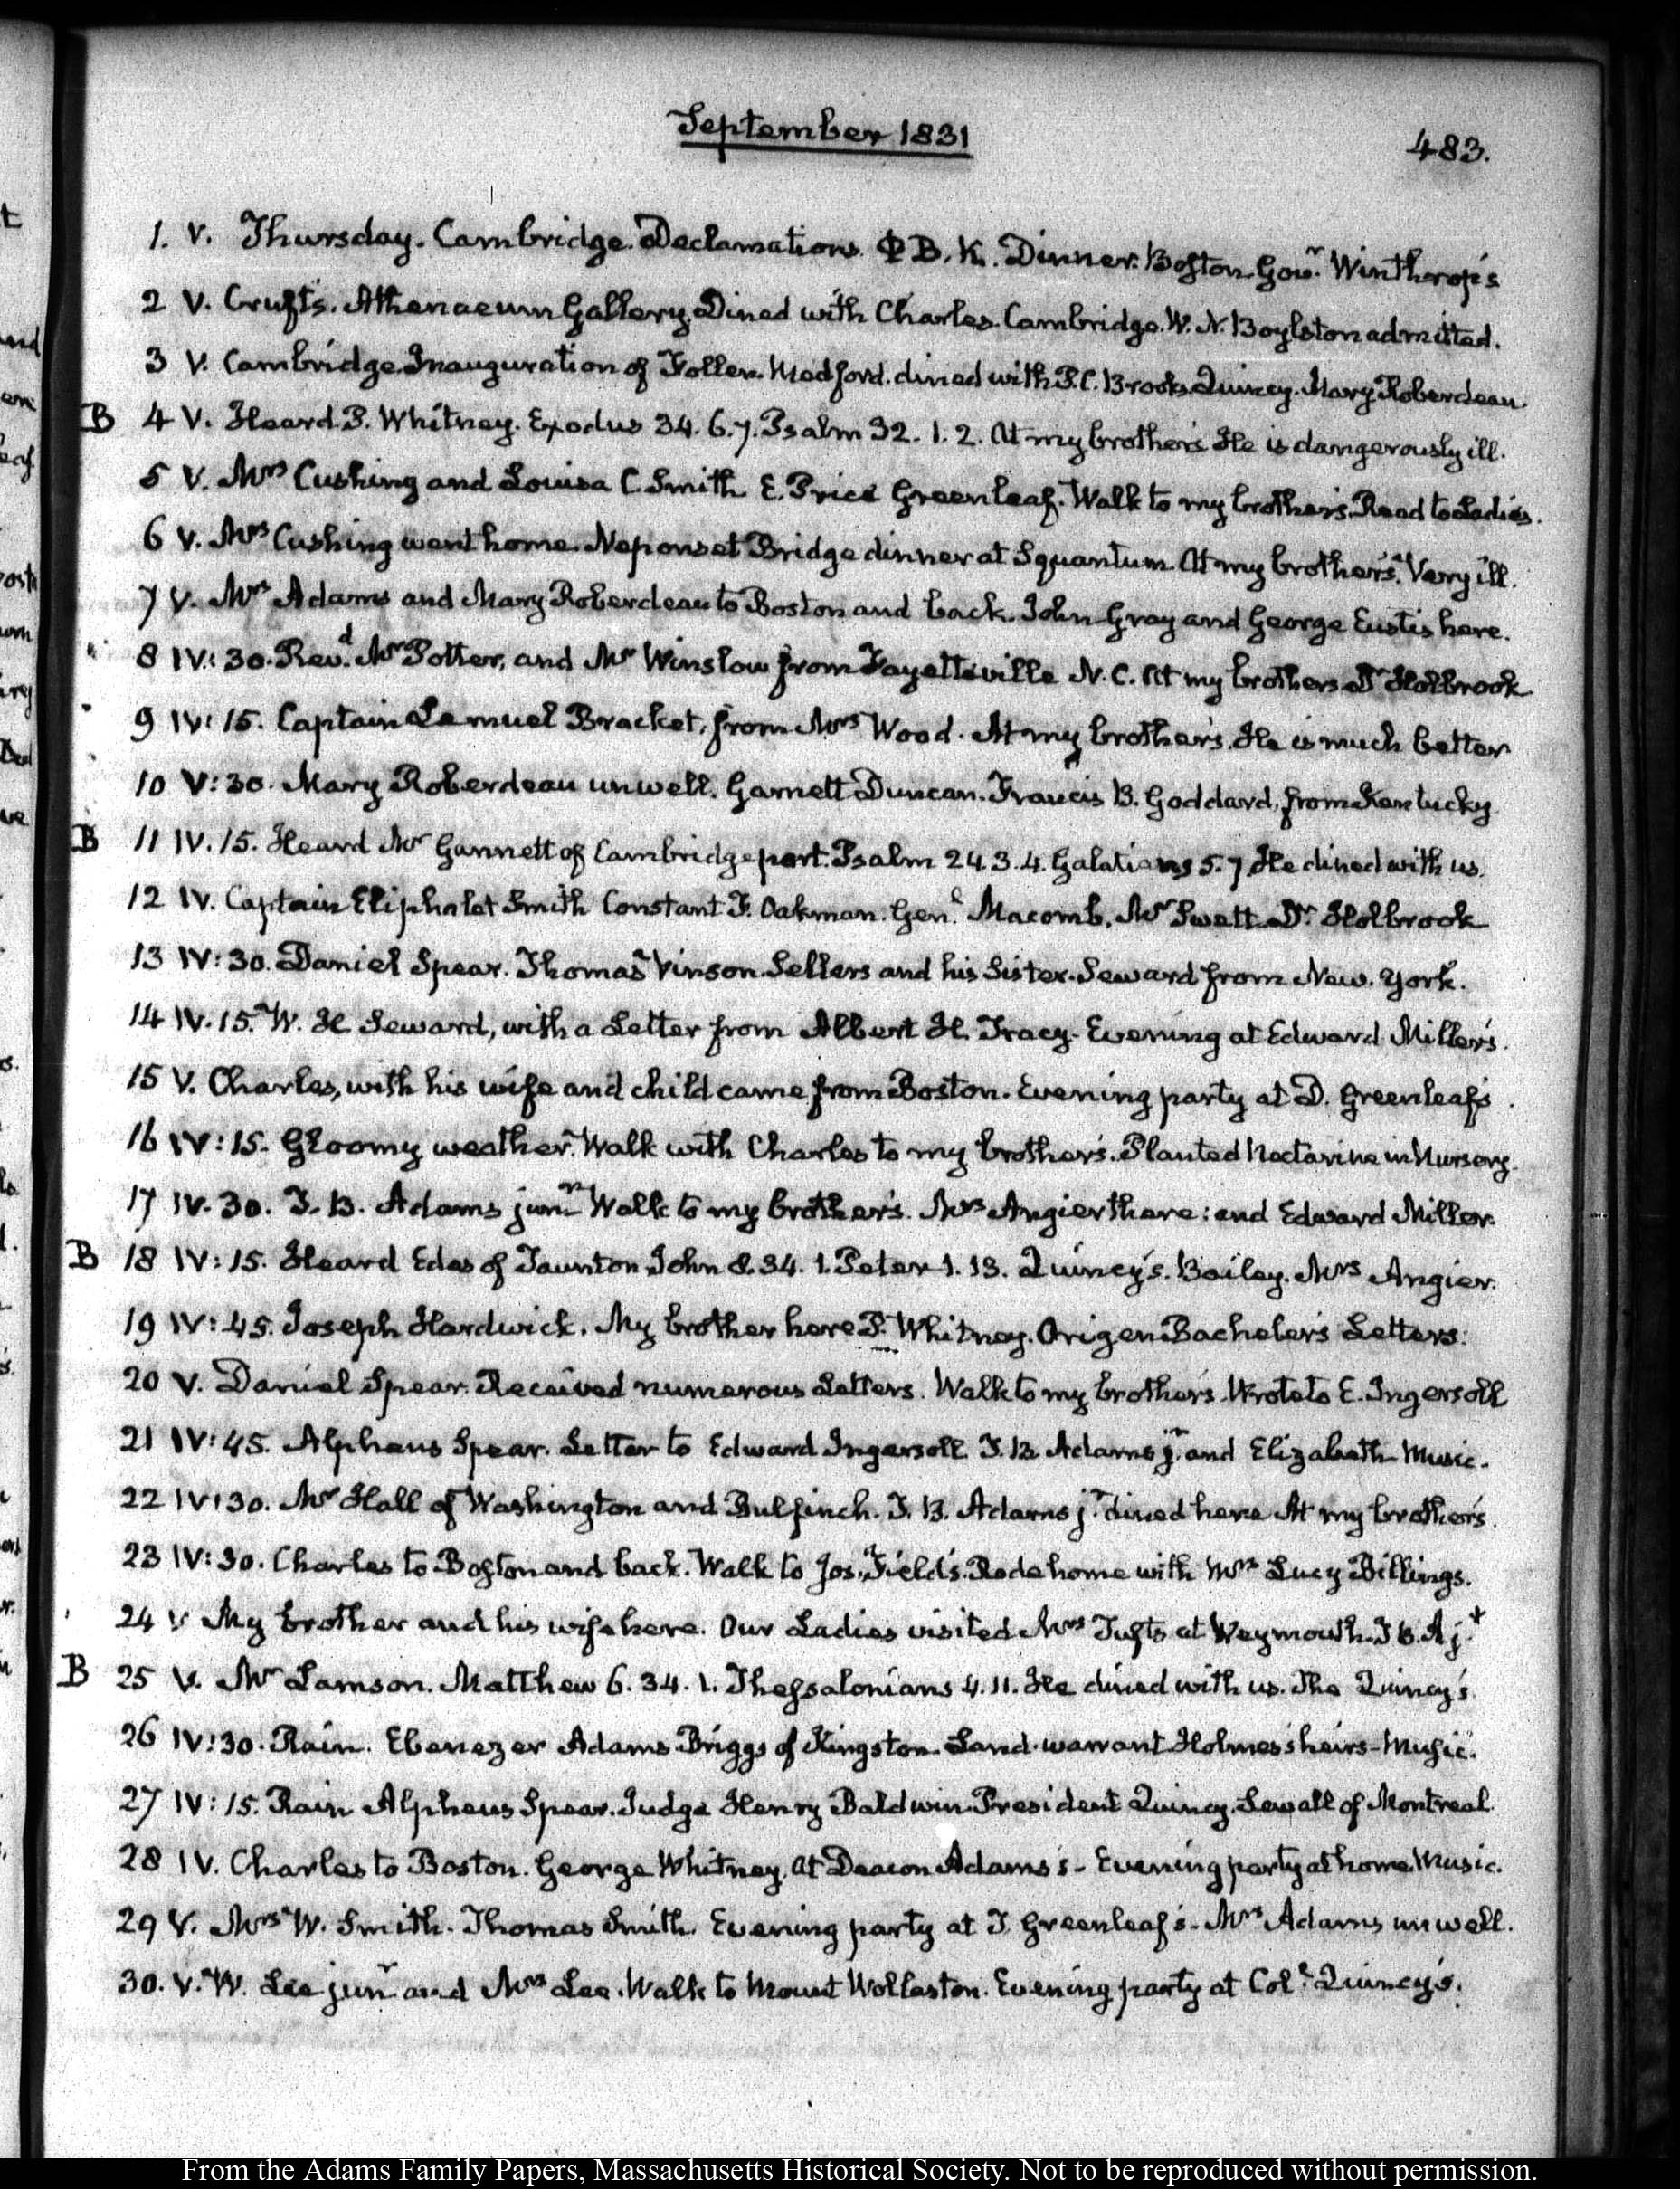 September 1831
483.
1. V. Thursday. Cambridge. Declamations. Φ B. K. Dinner. Boston Govr. Winthrop's
2 V. Cruft's. Athenaeum Gallery. Dined with Charles. Cambridge. W. N. Boylston admitted.
3 V. Cambridge. Inauguration of Follen. Medford. dined with P. C. Brooks. Quincy. Mary Roberdeau.
B 4 V. Heard P. Whitney. Exodus 34. 6. 7. Psalm 32. 1. 2. At my brother's. He is dangerously ill.
5 V. Mrs Cushing and Louisa C. Smith. E. Price Greenleaf. Walk to my brother's. Read to Ladies.
6 V. Mrs Cushing went home. Neponset Bridge dinner at Squantum. At my brother's. Very ill.
7 V. Mrs Adams and Mary Roberdeau to Boston and back. John Gray and George Eustis here.
8 IV: 30. Revd. Mr Potter, and Mr Winslow from Fayetteville N. C. At my brothers Dr Holbrook
9 IV: 15. Captain Lemuel Bracket, from Mrs Wood. At my brother's. He is much better
10 V: 30. Mary Roberdeau unwell. Garnett Duncan. Francis B. Goddard, from Kentucky
B 11 IV. 15. Heard Mr Gannett of Cambridgeport. Psalm 24. 3. 4. Galatians 5. 7 He dined with us.
12 IV. Captain Eliphalet Smith Constant F. Oakman. Genl. Macomb. Mr Swett. Dr. Holbrook
13 IV: 30. Daniel Spear. Thomas Vinson. Sellers and his Sister. Seward from New. York.
14 IV. 15. W. H Seward, with a Letter from Albert H. Tracy. Evening at Edward Miller's.
15 V. Charles, with his wife and child came from Boston. Evening party at D. Greenleaf's.
16 IV: 15. Gloomy weather. Walk with Charles to my brother's. Planted Nectarine in Nursery.
17 IV. 30. T. B. Adams junr. Walk to my brother's. Mrs Angier there: and Edward Miller.
B 18 IV: 15. Heard Edes of Taunton John 8. 34. 1. Peter 1. 13. Quincy's. Bailey. Mrs Angier.
19 IV: 45. Joseph Hardwick. My brother here P. Whitney. Origen Bacheler's Letters.
20 V. Daniel Spear. Received numerous Letters. Walk to my brother's. Wrote to E. Ingersoll
21 IV: 45. Alpheus Spear. Letter to Edward Ingersoll. T. B. Adams jr. and Elizabeth. Music.
22 IV: 30. Mr Hall of Washington and Bulfinch. T. B. Adams jr. dined here At my brother's.
23 IV: 30. Charles to Boston and back. Walk to Jos. Field's. Rode home with Mrs Lucy Billings.
24 V My brother and his wife here. Our Ladies visited Mrs Tufts at Weymouth. T B. A j. +
B 25 V. Mr Lamson. Matthew 6. 34. 1. Thessalonians 4. 11. He dined with us. The Quincy's.
26 IV: 30. Rain. Ebenezer Adams. Briggs of Kingston. Land-warrant Holmes's heirs - Music.
27 IV: 15. Rain Alpheus Spear. Judge Henry Baldwin. President Quincy. Sewall of Montreal.
28 IV. Charles to Boston. George Whitney. At Deacon Adams's - Evening party at home. Music.
29 V. Mrs W. Smith. Thomas Smith. Evening party at T. Greenleaf's. Mrs Adams unwell.
30. V. W. Lee junr and Mrs Lee. Walk to Mount Wollaston. Evening party at Coll. Quincy's.
From the Adams Family Papers, Massachusetts Historical Society. Not to be reproduced without permission.